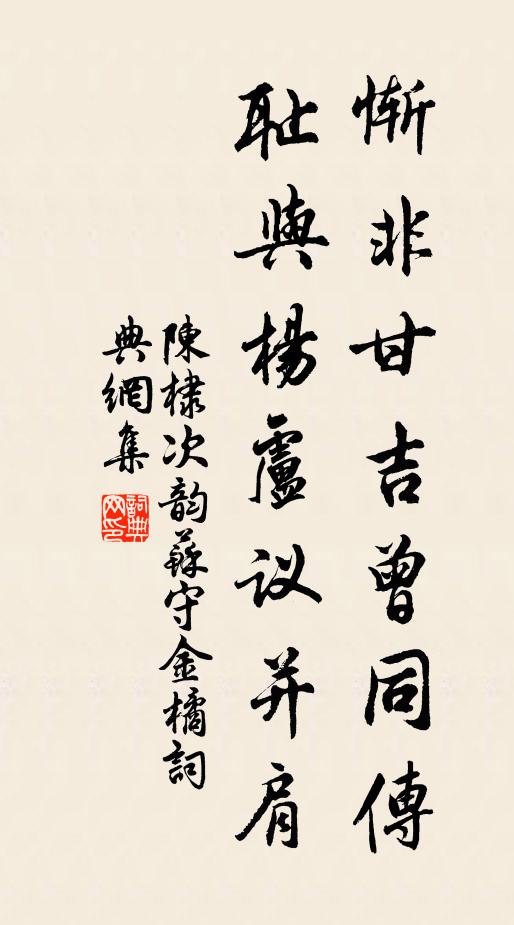 惭非甘吉曾同傳
耻與楊盧议并肩
陳棣次韵蘇守金橘詞
典網集
詞典
网印